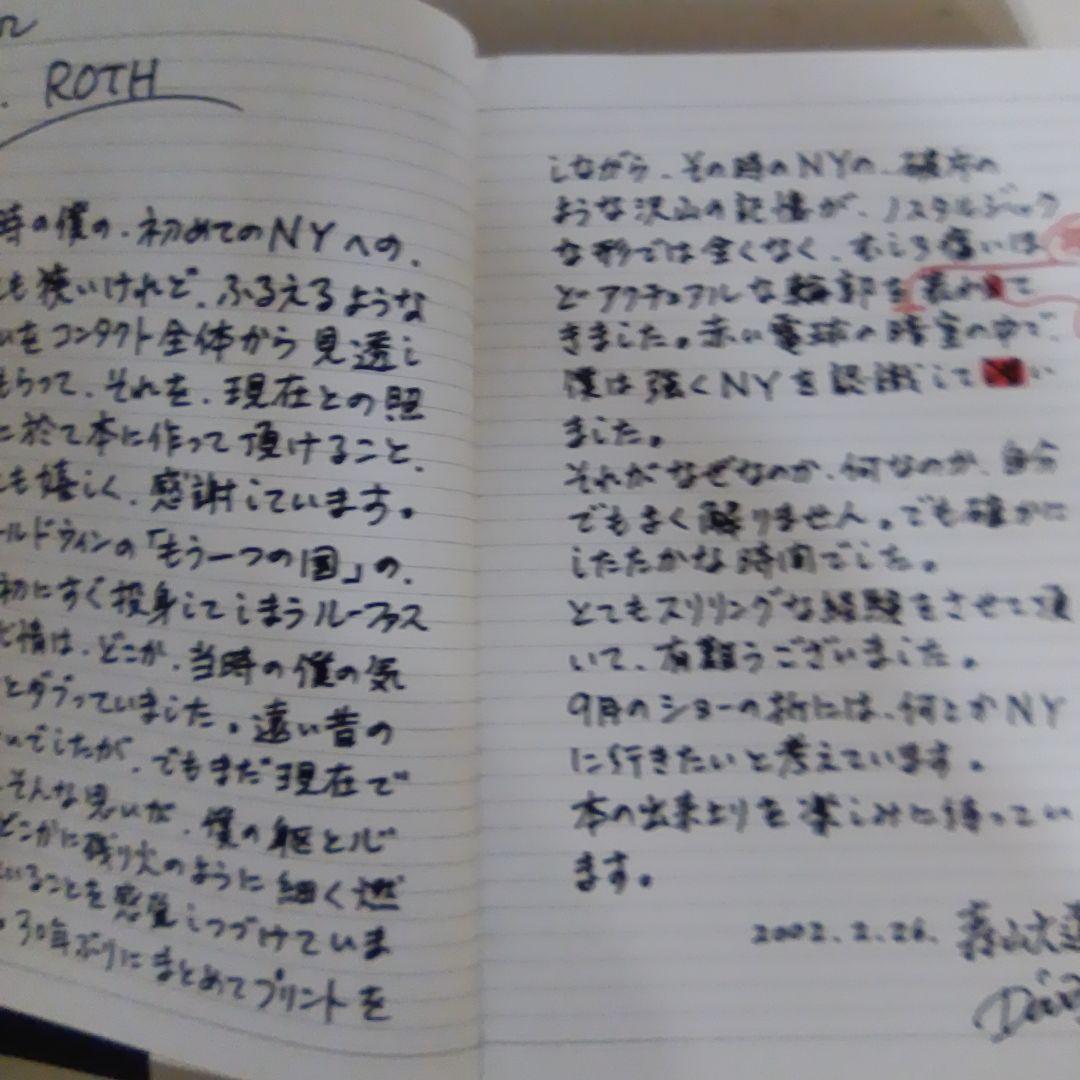 . ROTH
時の僕の、初めてのNYへの、
も狭いけれど、ふるえるような
いをコンタクト全体から見透し
もらって、それを、現在との照
に於て本に作って頂けること、
も嬉しく、感謝しています。
ールドウィンの「もう一つの国」の、
初にすぐ投身してしまうルーファス
情は、どこか、当時の僕の気
とダブっていました。遠い昔の
いでしたが、でもまだ現在で
そんな思いが、僕の躯と心
どこかに残り火のように細く燃
いることを感覚しつづけていま
30年ぶりにまとめてプリントを
しながら、その時のNYの、破片の
ような沢山の記憶が、ノスタルジック
な形では全くなく、むしろ痛いほ
どアクチュアルな輪郭を表わして
きました。赤い電球の暗室の中で、
僕は強くNYを認識して い
ました。
それがなぜなのか、何なのか、自分
でもよく解りません。でも確かに
したたかな時間でした。
とてもスリリングな経験をさせて頂
いて、有難うございました。
9月のショーの折には、何とかNY
に行きたいと考えています。
本の出来上りを楽しみに待ってい
ます。
2002.2.26. 森山大道